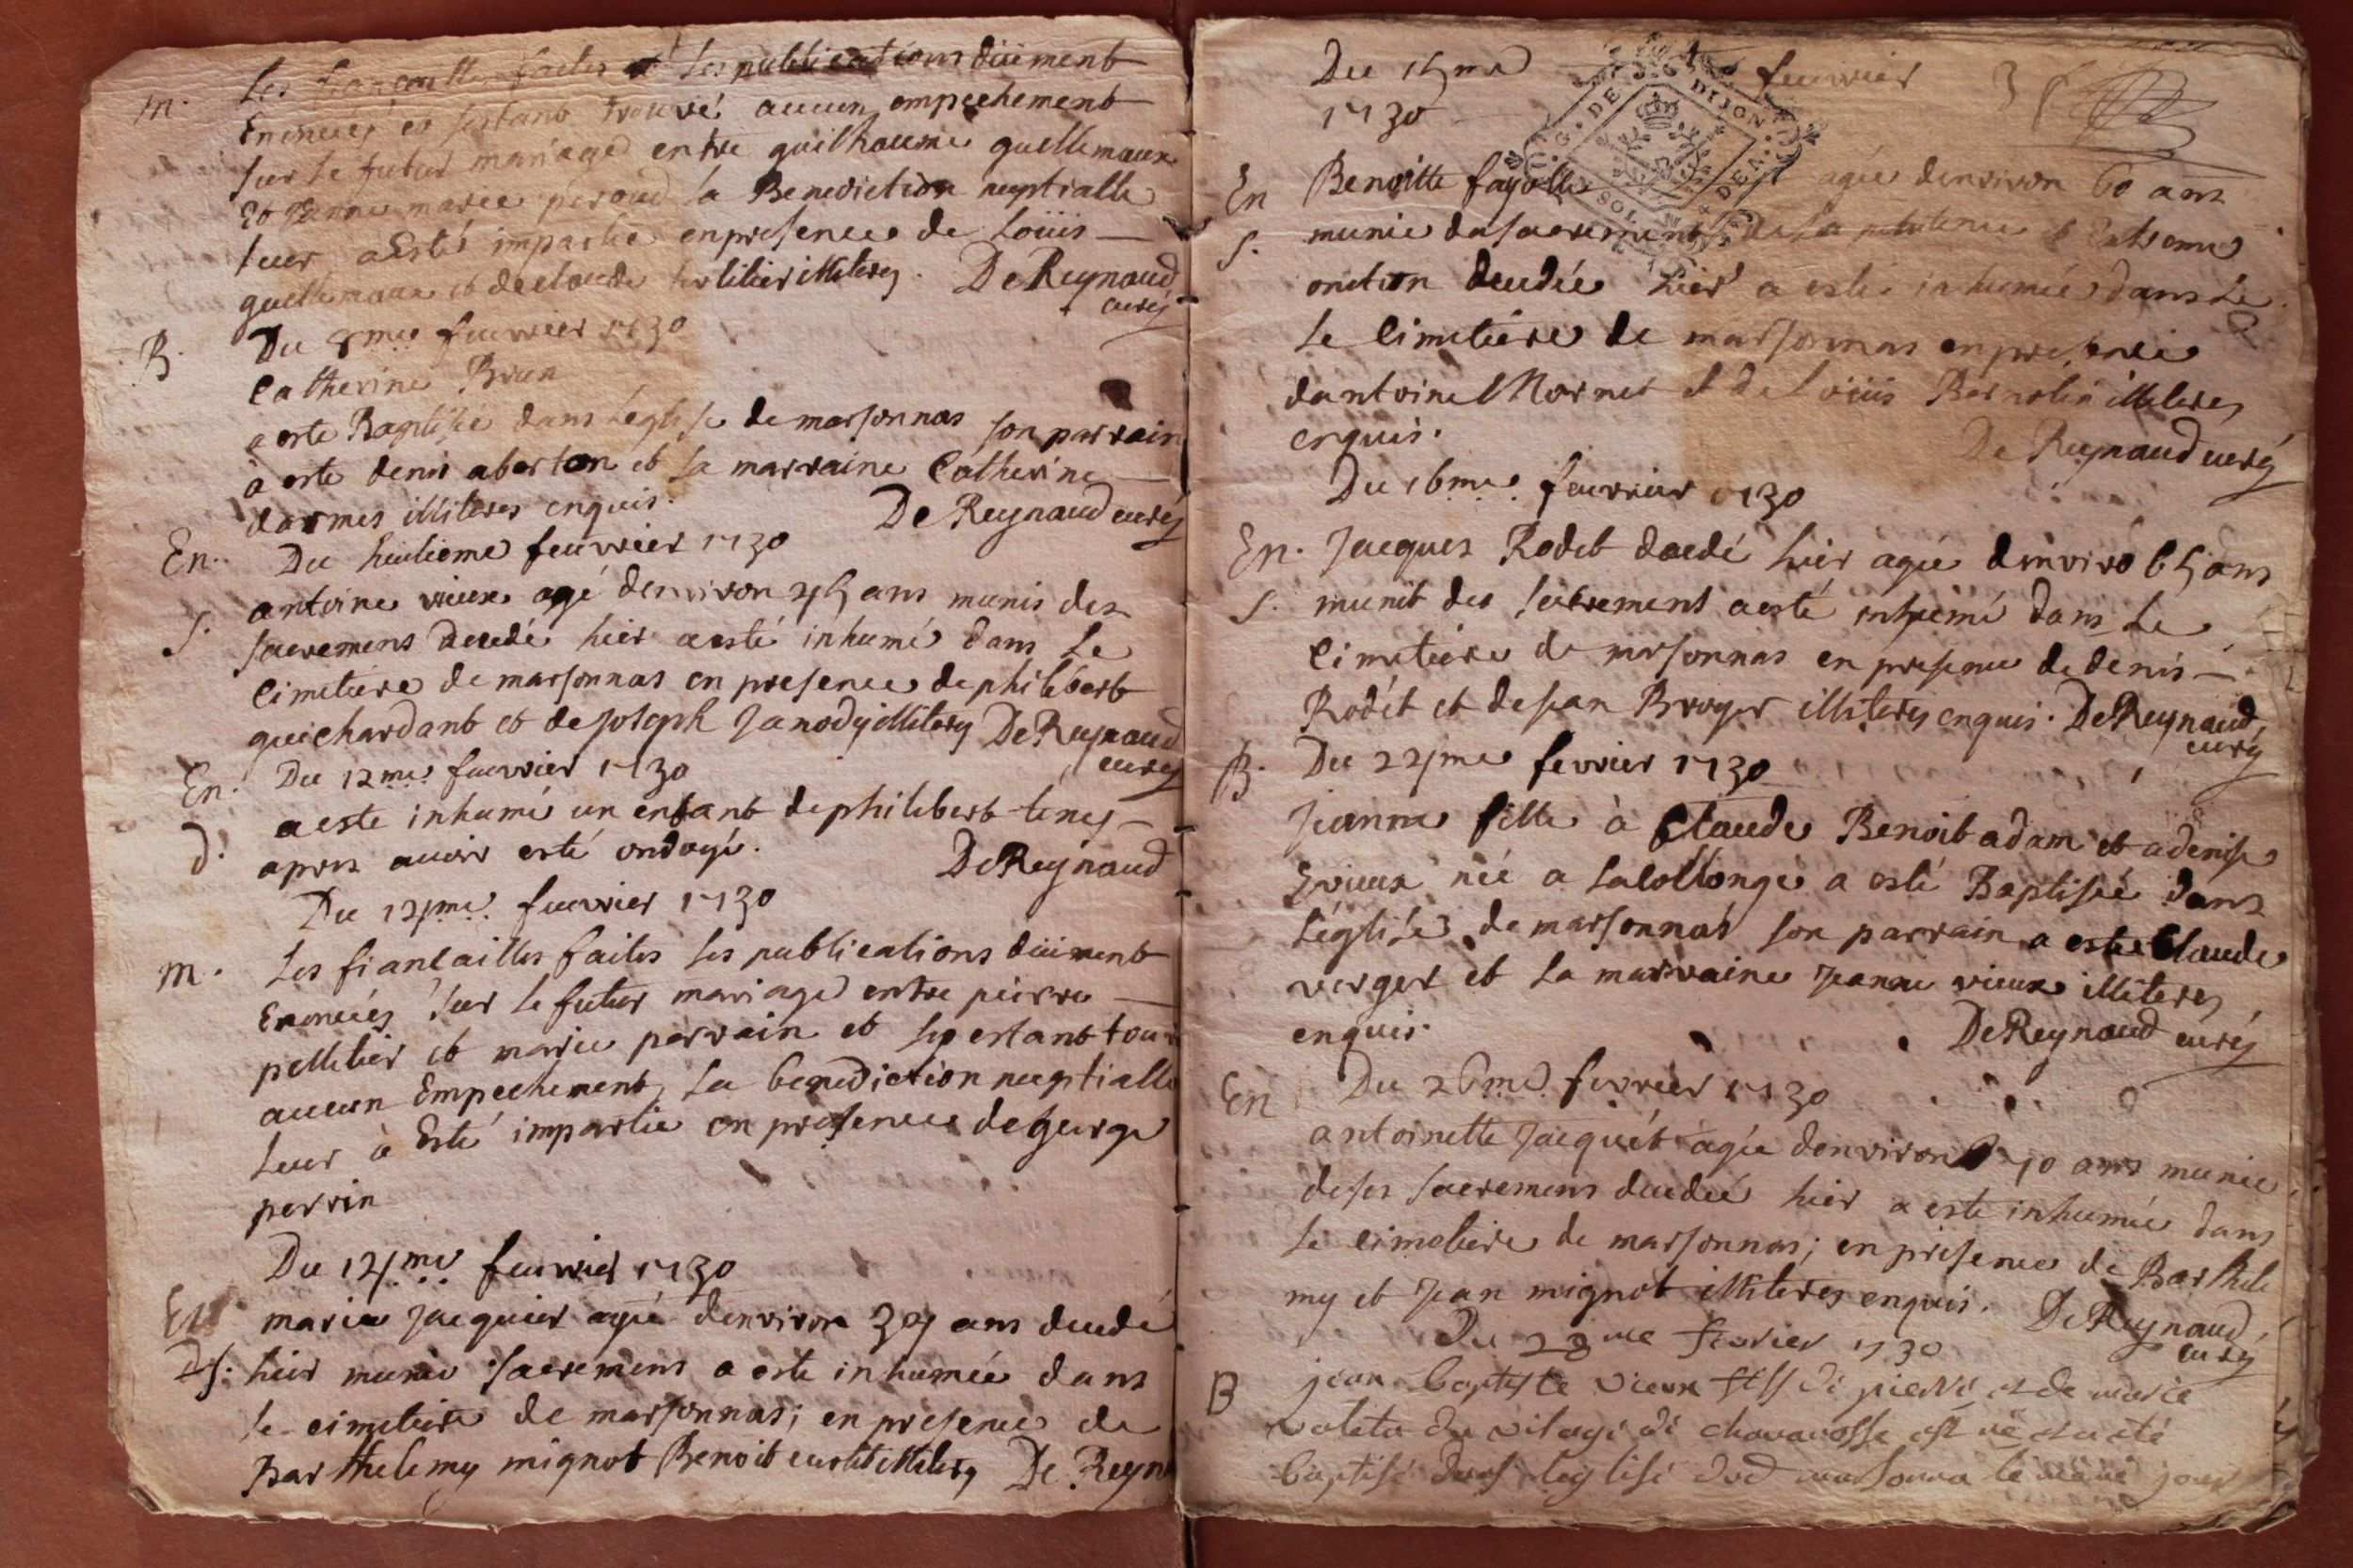 m. Les fiancailles faites et les publications düement
Enoncées et sestant trouvé aucun empechement
sur le futur mariage entre guilhaume guillemaux
et Jeanne marie peroud la Benediction nuptialle
leur a Esté impartie enpresence de Loüis
guillemaux et declaude illiteres. De Reynaud
curé
B. Du 8me feuvrier 1730
Catherine Brun
a este Baptisée dans Leglise de marsonnas son parrain
à este denis aberton et sa marraine Catherine
darmes illiteres enquis. De Reynaud curé
En. Du huitieme feuvrier 1730
antoine vieux agé denviron ans munis des
S. sacremens decedé hier aesté inhumé dans Le
Cimetiere de marsonnas en presence de philibert
guichardant et de Joseph Janody illiteres De Reynaud
curé
En. Du 12me feuvrier 1730
aeste inhumé un enfant de philibert
d. apres auoir esté ondoyé. De Reynaud
Du feuvrier 1730
m. Les fiancailles faites les publications düement
Enoncées sur le futur mariage entre pierre
pelletier et marie parrain et estant
aucun Empechement, La benediction nuptialle
leur à Esté impartie en presence de george
perrin
Du feuvrier 1730
En marie Jacquier agée denviron ans decedé
hier munie sacremens a este inhumée dans
le cimetiere de marsonnas; en presence de
Barthelemy mignot Benoit illiteres De Reyn
Du feuvrier
1730
G. DE DIJON
En Benoitte fayolle agée denviron 60 ans
S. munie du sacrement de la penitence et Extreme
onction decedée hier a esté inhumée dans Le
le Cimetiere de marsonnas enpresence
dantoine Mornet et de Loüis illiteres
enquis. De Reynaud curé
Du 16me feuvrier 1730
En. Jacques Rodet decedé hier agée denviro ans
S. munit des sacrement aesté inhumé dans Le
Cimetiere de marsonnas en presence de denis
Rodet et de Jean Broyer illiteres enquis. De Reynaud
curé
B. Du fevrier 1730
Jeanne fille à Claude Benoit adam et a denise
vieux née a Lacollonge a esté Baptisée dans
Léglise de marsonnas son parrain a este Claude
verger et la marraine Jeanne vieux illiteres
enquis. De Reynaud curé
En Du 26me fevrier 1730
antoinette Jacquet agée denviron ans munie
deses sacremens decedée hier a este inhumée dans
le cimetiere de marsonnas; en presence de Barthele
my et Jean mignot illiteres enquis. De Reynaud
curé
Du 28me fevrier 1730
B jean baptiste vieux fils de pierre et de marie
du vilage de est né et a eté
baptisé dans leglise de marsonna le meme jour